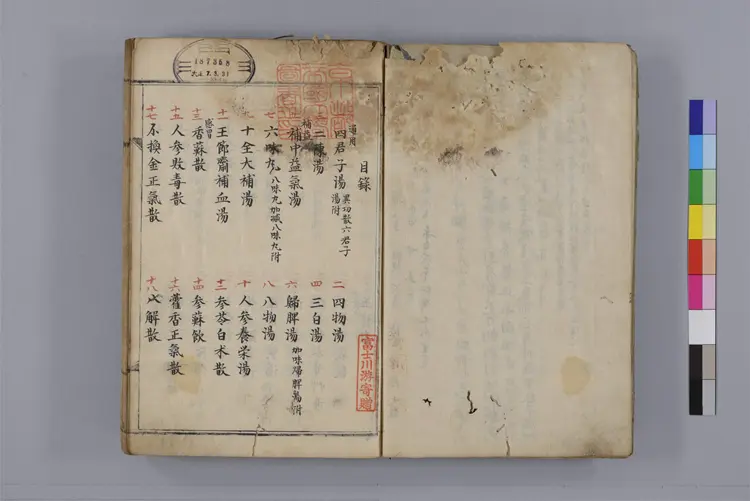 目錄
通用
四君子湯 異功散六君子湯附
二 四物湯
二陳湯
四 三白湯
補益
補中益氣湯
六 歸脾湯 加味歸脾湯附
七 六味丸 八味丸加減八味丸附
八 八物湯
九 十全大補湯
十 人參養栄湯
十一 王節齋補血湯
十二 參苓白朮散
感冒
十三 香蘇散
十四 參蘇飲
十五 人參敗毒散
十六 藿香正氣散
十七 不換金正氣散
十八 八解散
富士川游寄贈
187358
大正 7.3.31